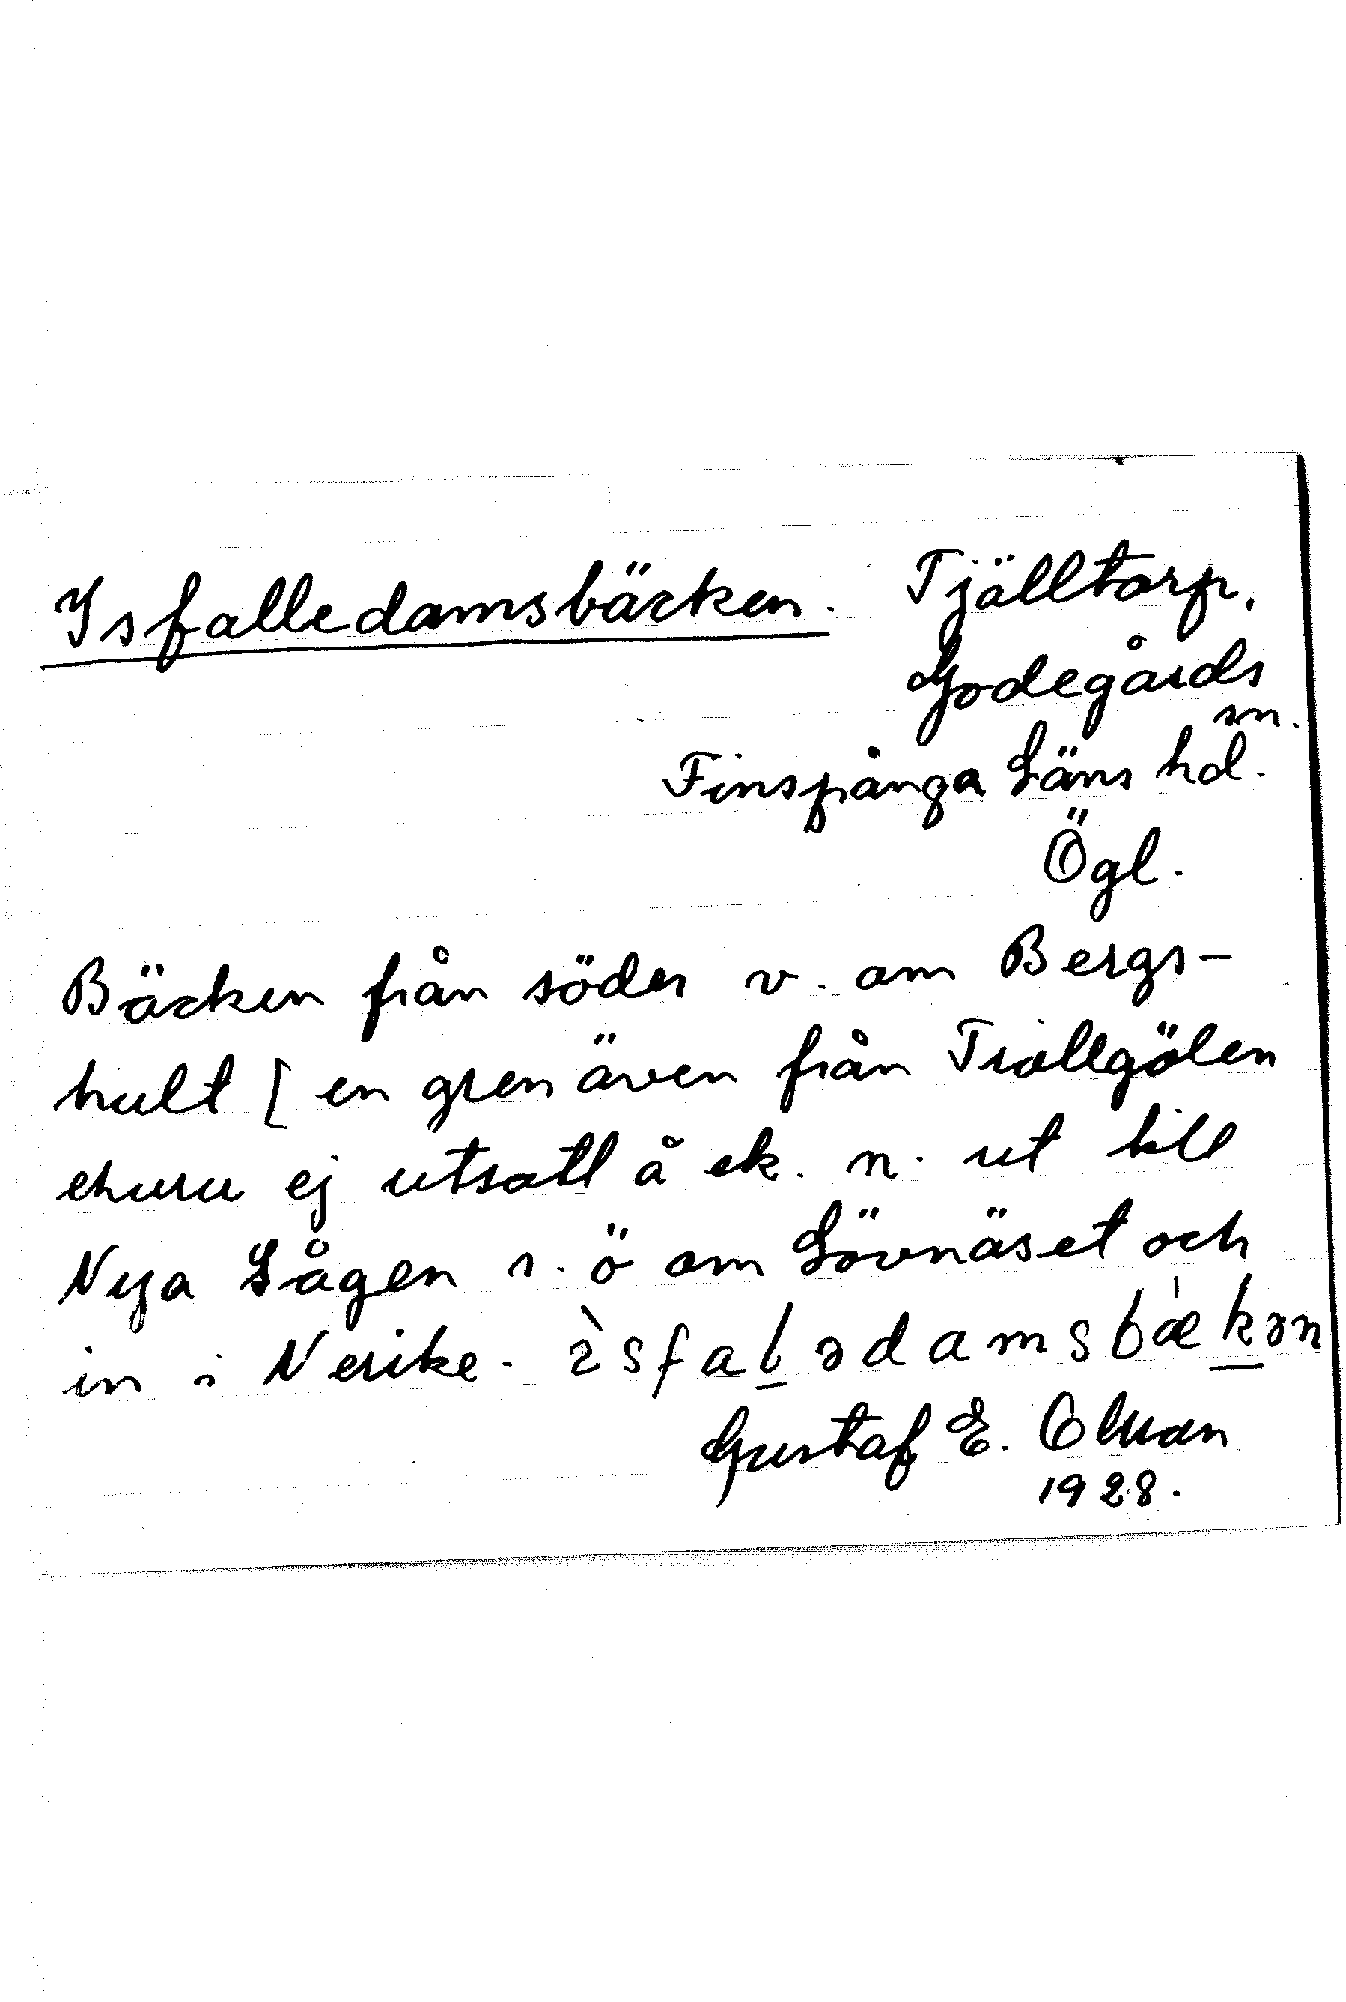 Isfalledamsbäcken. Tjälltorp,
Godegårds
sn.
Finspånga Läns hd.
Ögl.
Bäcken från söder v. om Bergs-
hult [ en gren även från Trollgölen
ehuru ej utsatt å ek. n. ut till
Nya Sågen s. ö om Lövnäset och
in i Nerike. ìsfaḻədamsbæ̀ḵən
Gustaf E. Olson
1928.